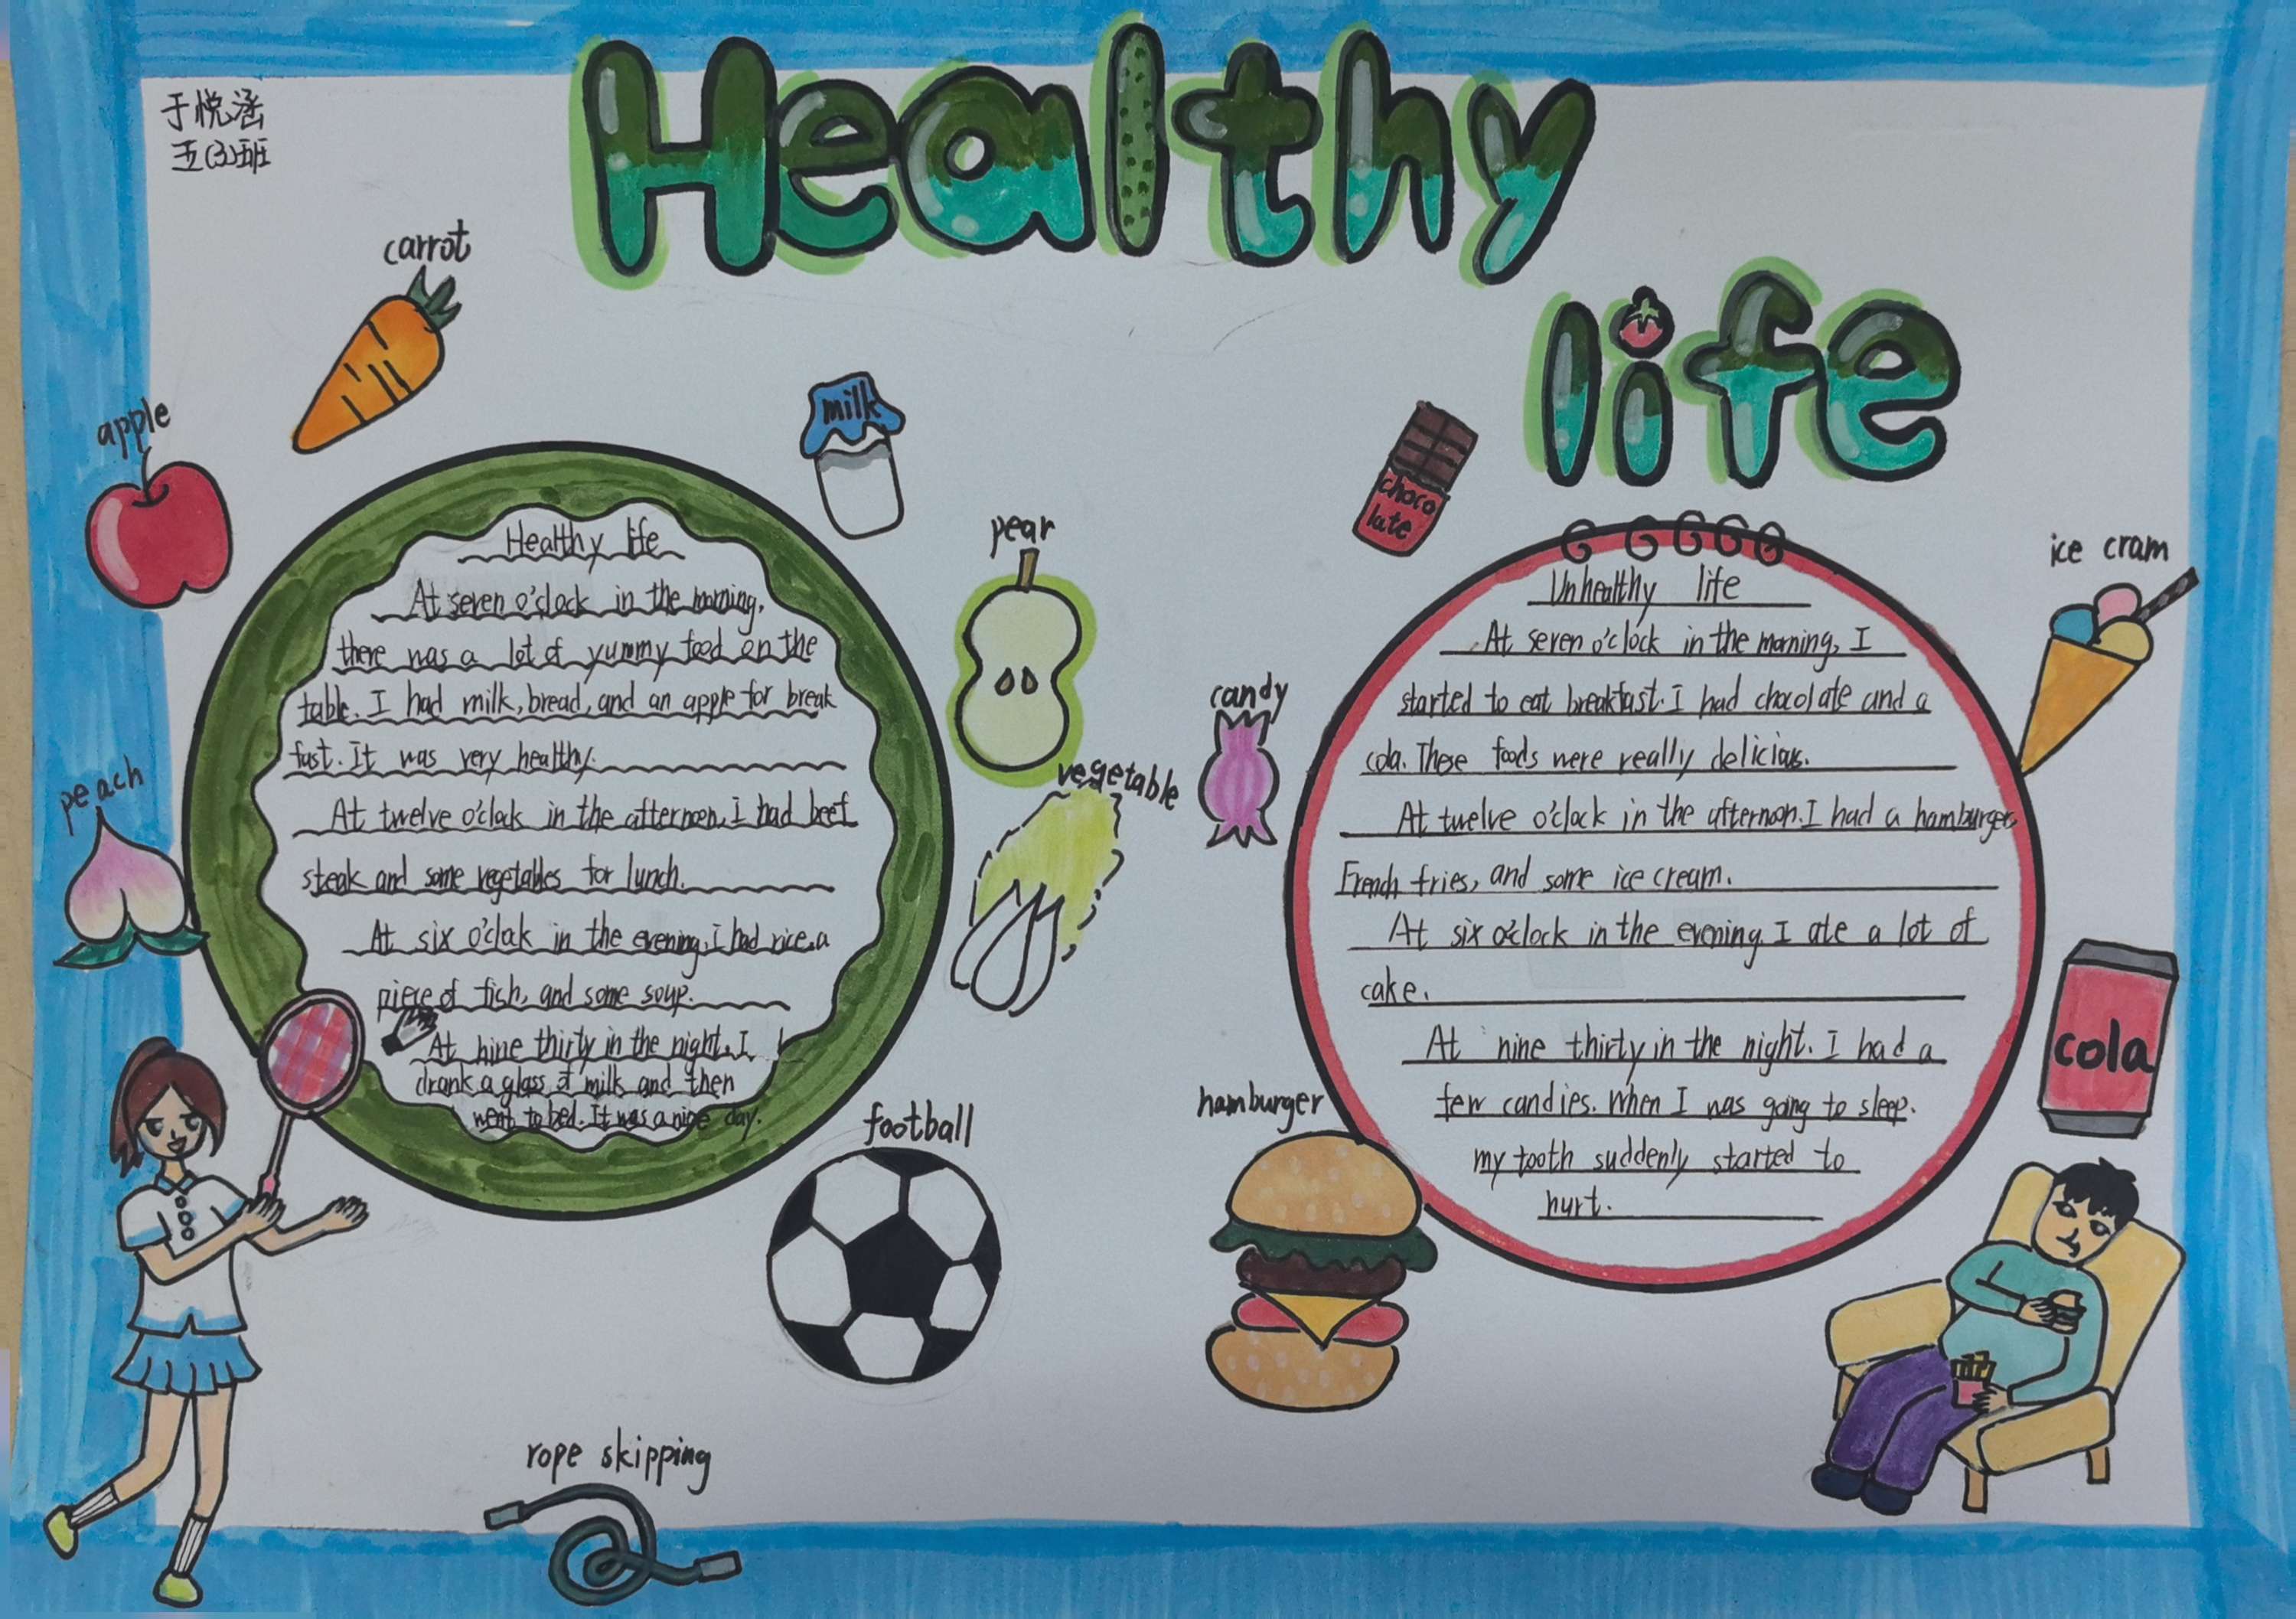 于悦涵
五(3)班
Healthy
life
carrot
apple
milk
pear
peach
vegetable
Healthy life
At seven o'clock in the morning,
there was a lot of yummy food on the
table. I had milk, bread, and an apple for break
fast. It was very healthy.
At twelve o'clock in the afternoon, I had beef
steak and some vegetables for lunch.
At six o'clock in the evening, I had rice, a
piece of fish, and some soup.
At nine thirty in the night, I
drank a glass of milk and then
went to bed. It was a nice day.
football
rope skipping
choco
late
candy
ice cram
cola
hamburger
Unhealthy life
At seven o'clock in the morning, I
started to eat breakfast. I had chocolate and a
cola. These foods were really delicious.
At twelve o'clock in the afternoon. I had a hamburger,
French fries, and some ice cream.
At six o'clock in the evening. I ate a lot of
cake.
At nine thirty in the night. I had a
few candies. When I was going to sleep.
my tooth suddenly started to
hurt.